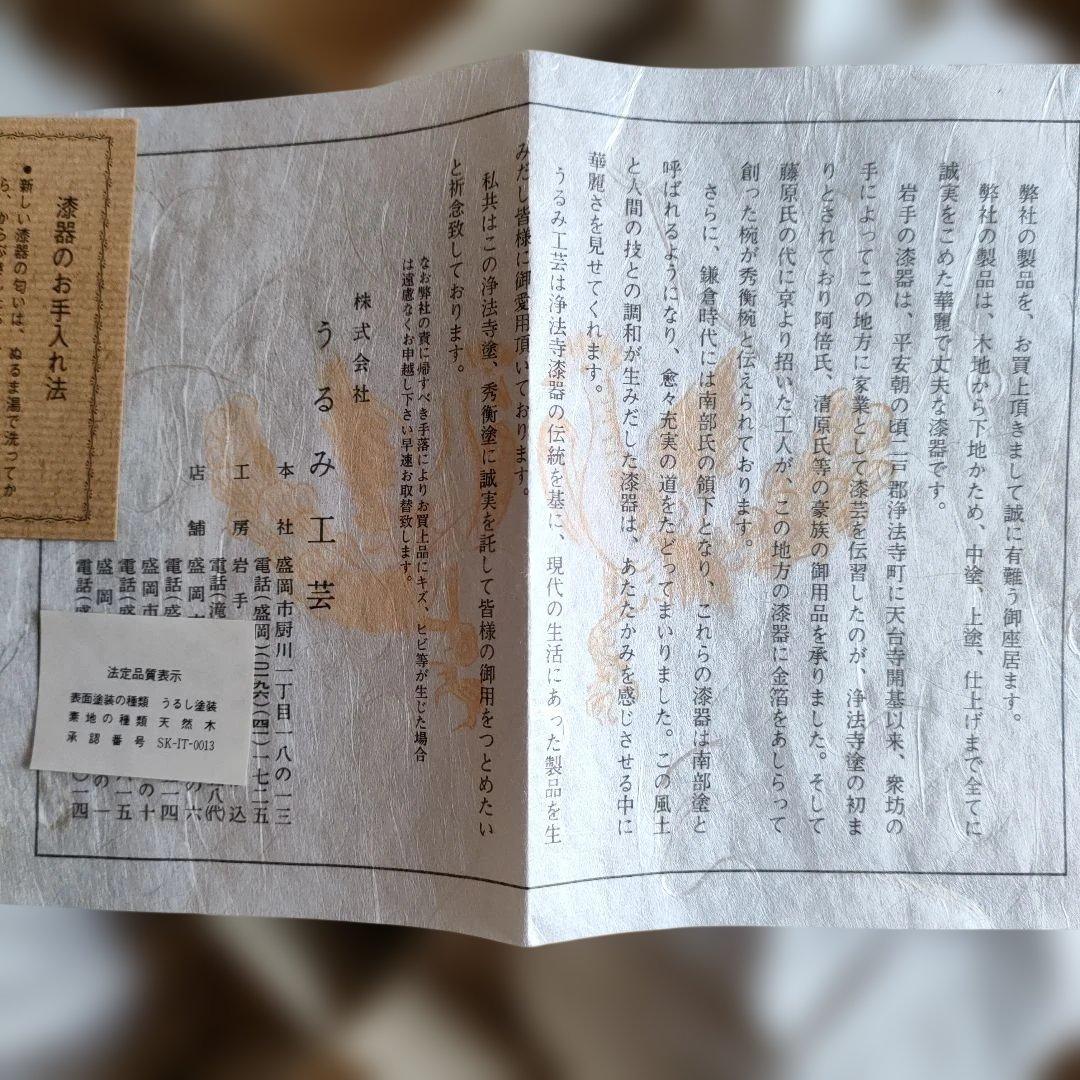 弊社の製品を、お買上頂きまして誠に有難う御座居ます。
弊社の製品は、木地から下地かため、中塗、上塗、仕上げまで全てに
誠実をこめた華麗で丈夫な漆器です。
岩手の漆器は、平安朝の頃二戸郡浄法寺町に天台寺開基以来、衆坊の
手によってこの地方に家業として漆芸を伝習したのが、浄法寺塗の初ま
りとされており阿倍氏、清原氏等の豪族の御用品を承りました。そして
藤原氏の代に京より招いた工人が、この地方の漆器に金箔をあしらって
創った椀が秀衡椀と伝えられております。
さらに、鎌倉時代には南部氏の領下となり、これらの漆器は南部塗と
呼ばれるようになり、愈々充実の道をたどってまいりました。この風土
と人間の技との調和が生みだした漆器は、あたたかみを感じさせる中に
華麗さを見せてくれます。
うるみ工芸は浄法寺漆器の伝統を基に、現代の生活にあった製品を生
みだし皆様に御愛用頂いております。
私共はこの浄法寺塗、秀衡塗に誠実を託して皆様の御用をつとめたい
と祈念致しております。
なお弊社の責に帰すべき手落によりお買上品にキズ、ヒビ等が生じた場合
は遠慮なくお申越し下さい早速お取替致します。
株式会社
うるみ工芸
本社 盛岡市厨川一丁目一八の一三
電話(盛岡)(〇一九六)(四一)一七二五
工房 岩手 込
電話(滝 八(代)
店舗 盛岡 の六
電話(盛 一四
盛岡市 の十
電話( 一五
盛岡 の一
電話(盛 〇一四
漆器のお手入れ法
●新しい漆器の匂いは、ぬるま湯で洗ってか
ら、からぶき
法定品質表示
表面塗装の種類 うるし塗装
素地の種類 天然木
承認番号 SK-IT-0013